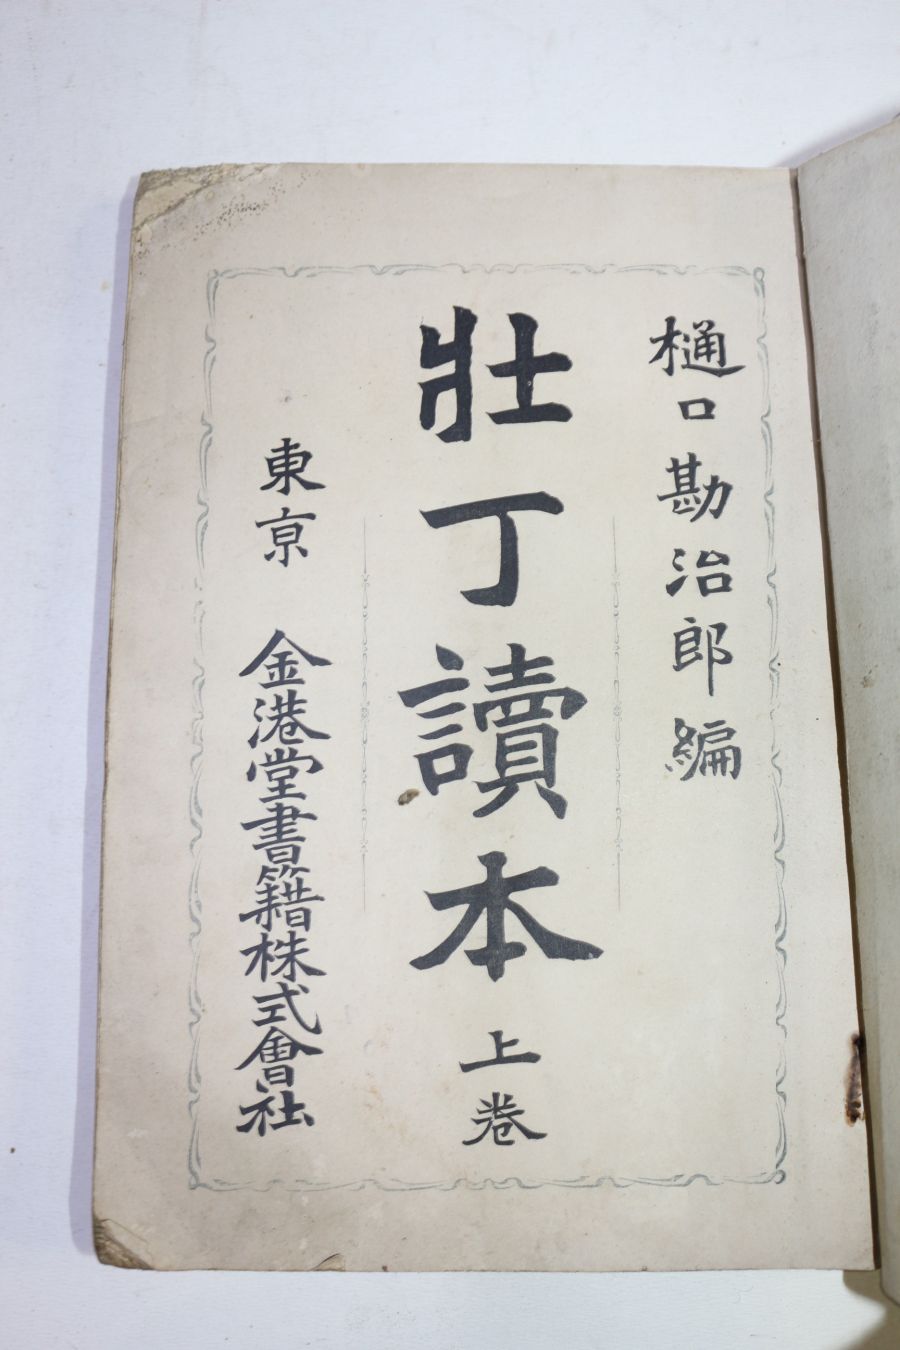 樋口勘治郎編
壯丁讀本上卷
東亰 金港堂書籍株式會社